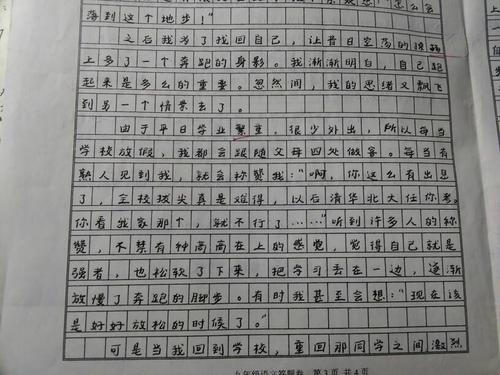 落到这个地步！"
之后我为了找回自己，让昔日空荡的
上多了一个奔跑的身影。我渐渐明白，自己跑
起来是多么的重要。忽然间，我的思绪又飘飞
到另一个情景去了。
由于平日学业繁重，很少外出，所以每当
学校放假，我都会跟随父母四处做客。每当有
熟人见到我，就会称赞我："啊，你这么有出息
了，全校拔尖真是难得，以后清华北大任你考。
你看我家那个，就不行了……"听到许多人的称
赞，不禁有种高高在上的感觉，觉得自己就是
强者，也松软了下来，把学习丢在一边，逐渐
放慢了奔跑的脚步。有时我甚至会想："现在该
是好好放松的时候了。"
可是当我回到学校，重回那同学之间激烈
九年级语文答题卷 第3页 共4页